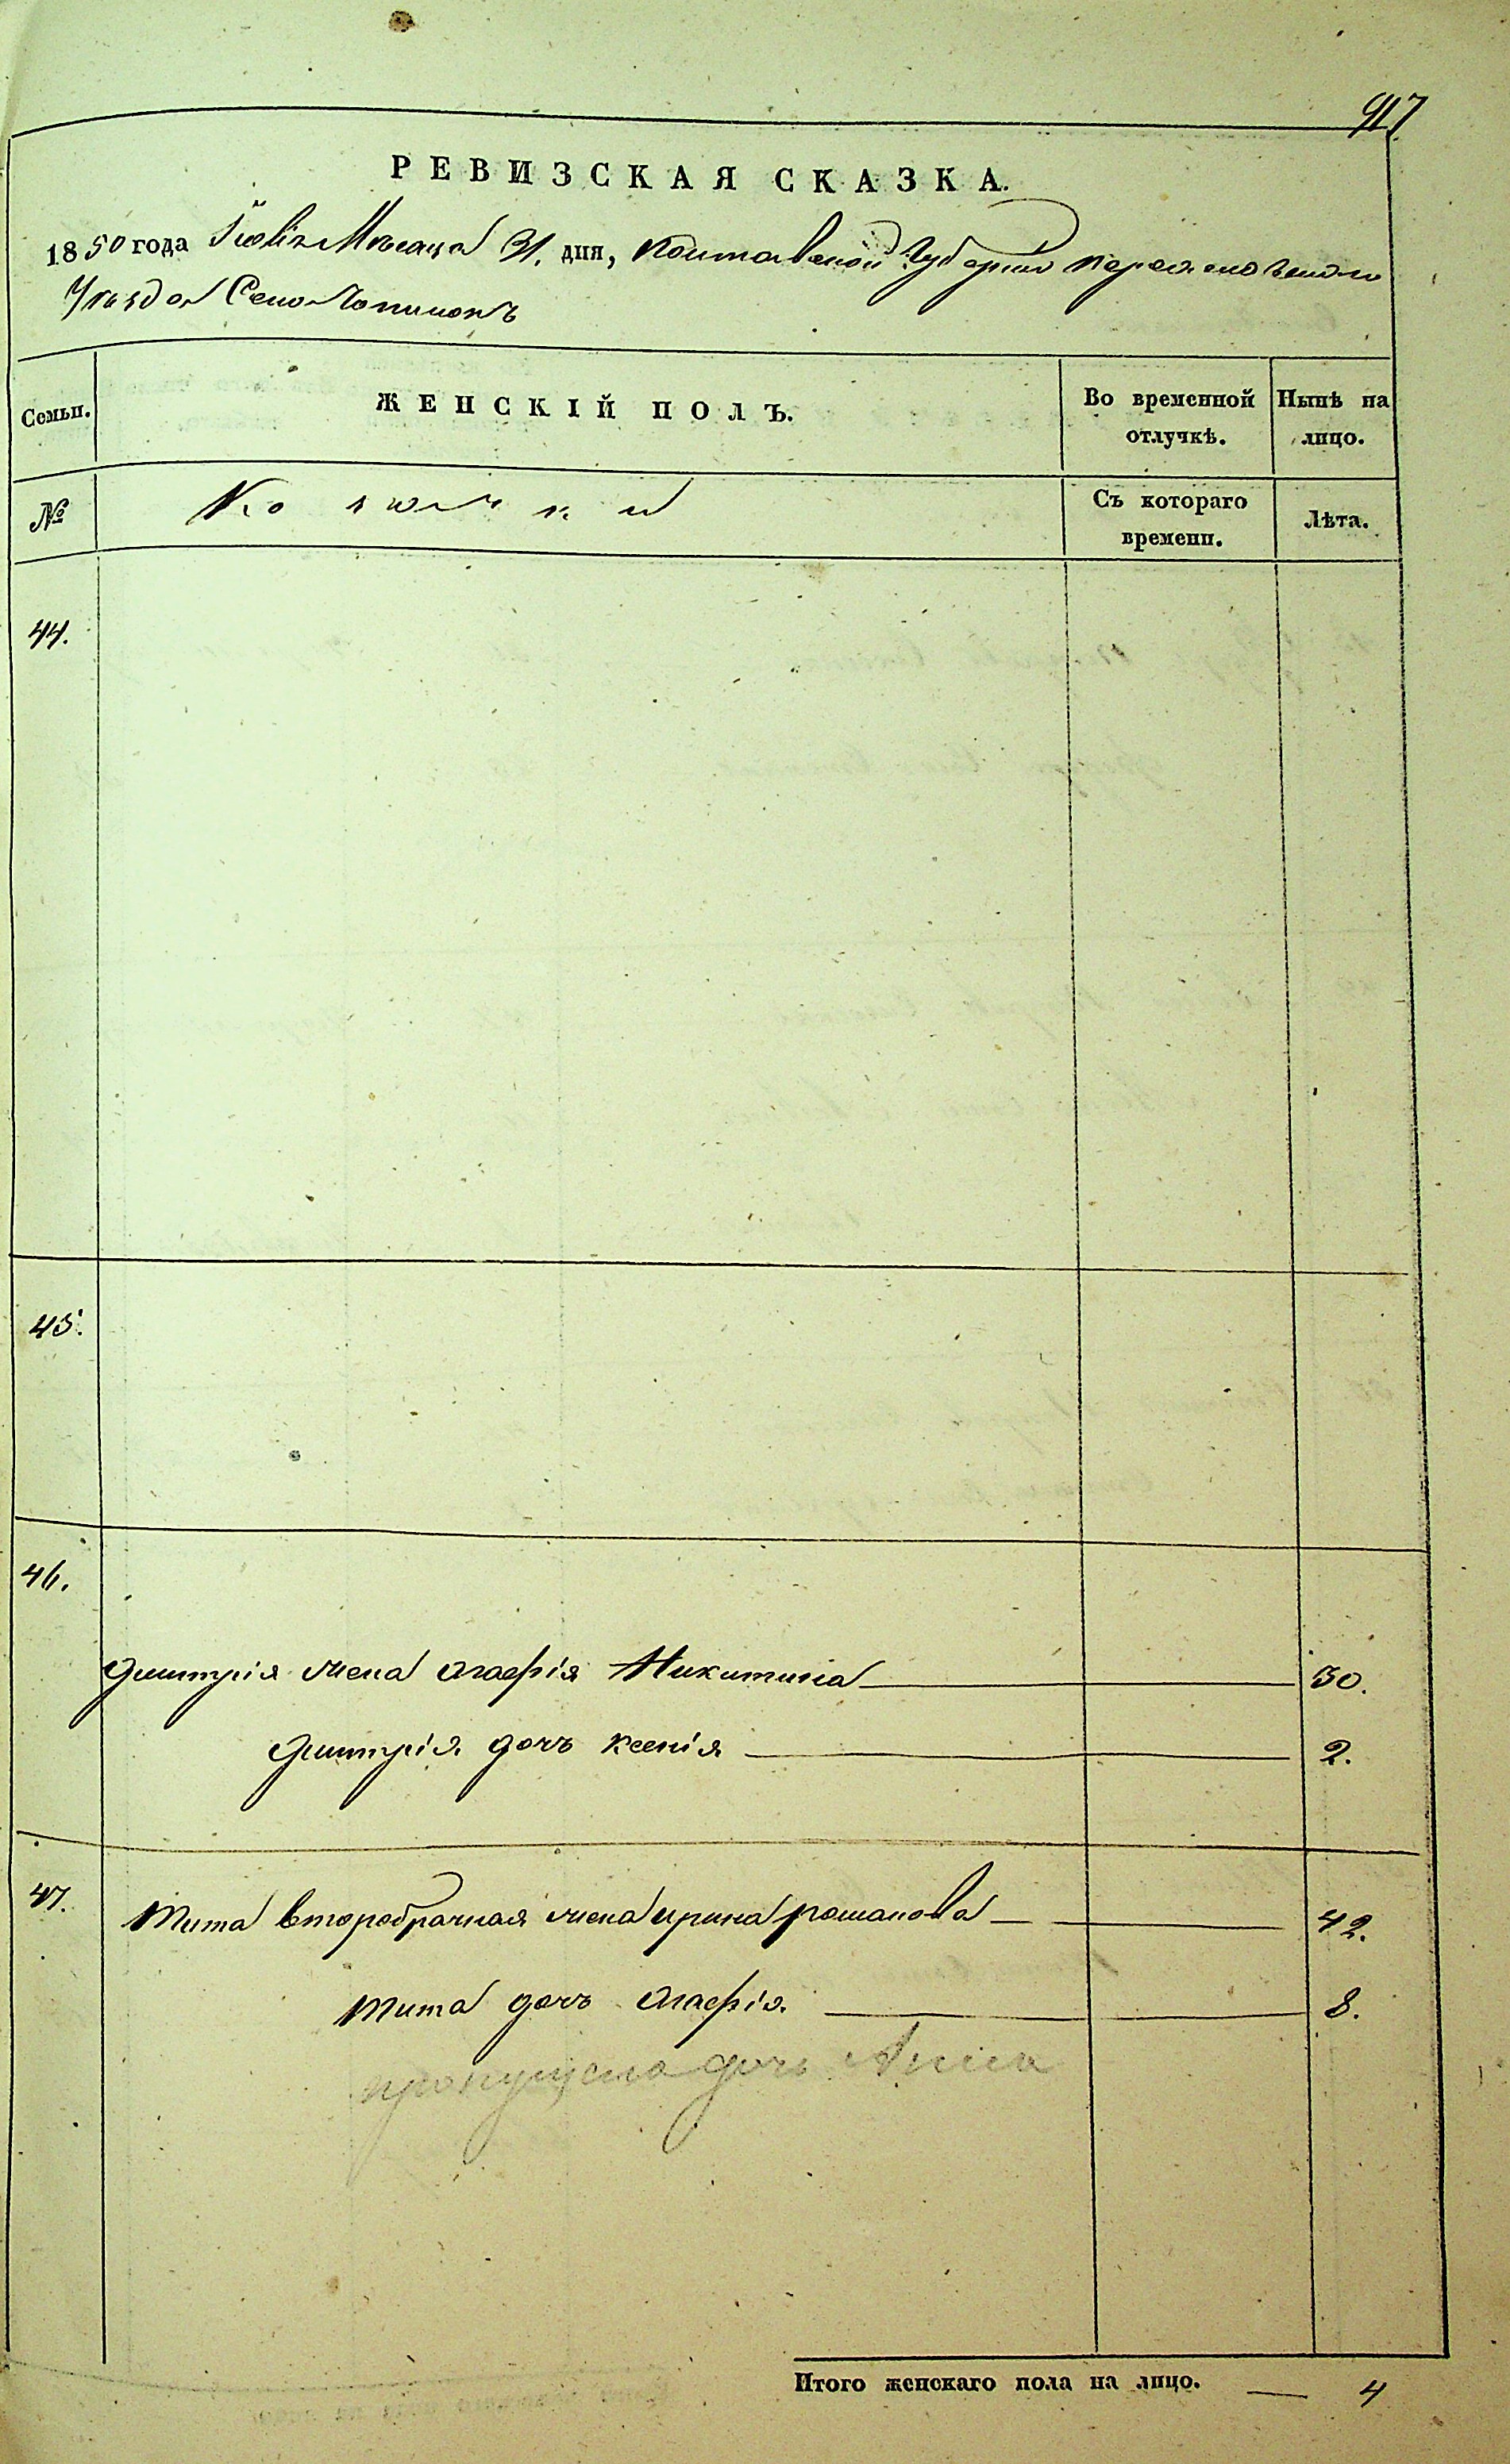 917
РЕВИЗСКАЯ СКАЗКА.
1850 года Іюля Месяца 31. дня, Полтавской Губерніи Переяславскаго
Уѣзда Село
Семьи.
ЖЕНСКІЙ ПОЛЪ.
Во временной отлучкѣ.
Нынѣ на лицо.
№
Съ котораго времени.
Лѣта.
44.
45.
46.
Дмитрія жена Агафія Никитина 30.
Дмитрія дочь Ксенія 2.
47.
Тита второбрачная жена Ирина Романова 42.
Тита дочь Агафія. 8.
пропущена дочь Анна
Итого женскаго пола на лицо. 4